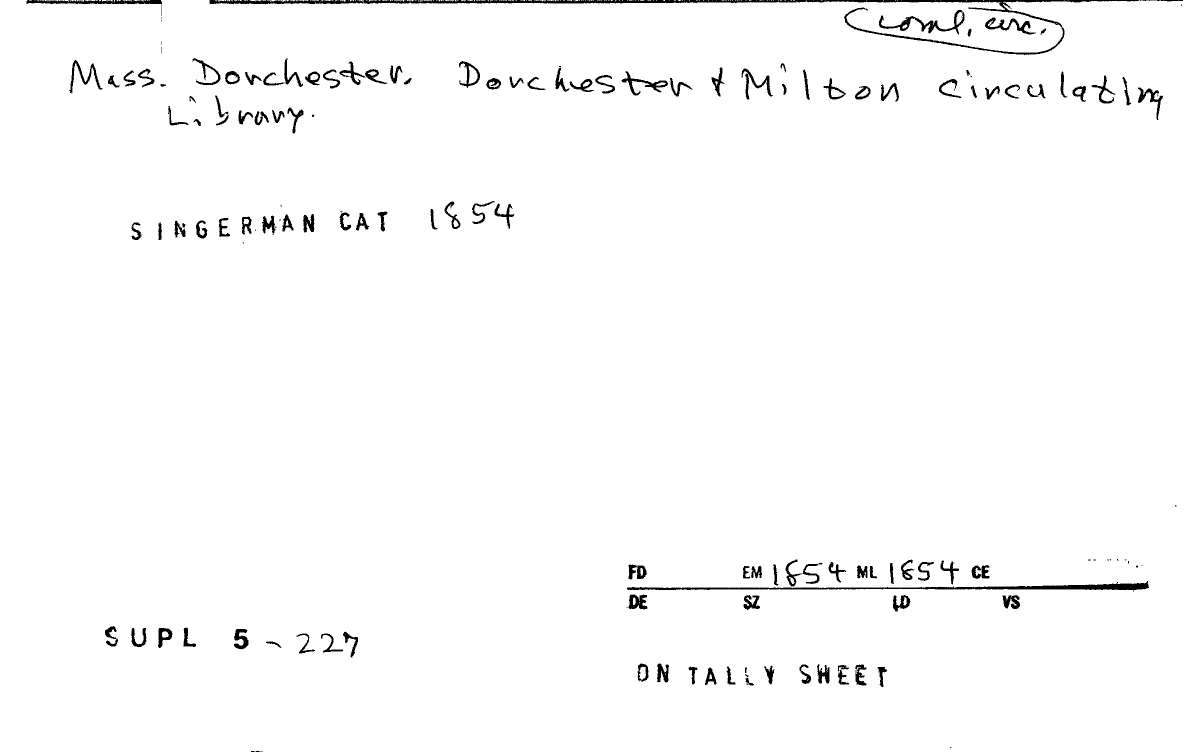 Coml. circ.
Mass. Dorchester. Dorchester & Milton Circulating
Library.
SINGERMAN CAT 1854
FD EM 1854 ML 1854 CE
DE SZ LD VS
SUPL 5 - 227
ON TALLY SHEET